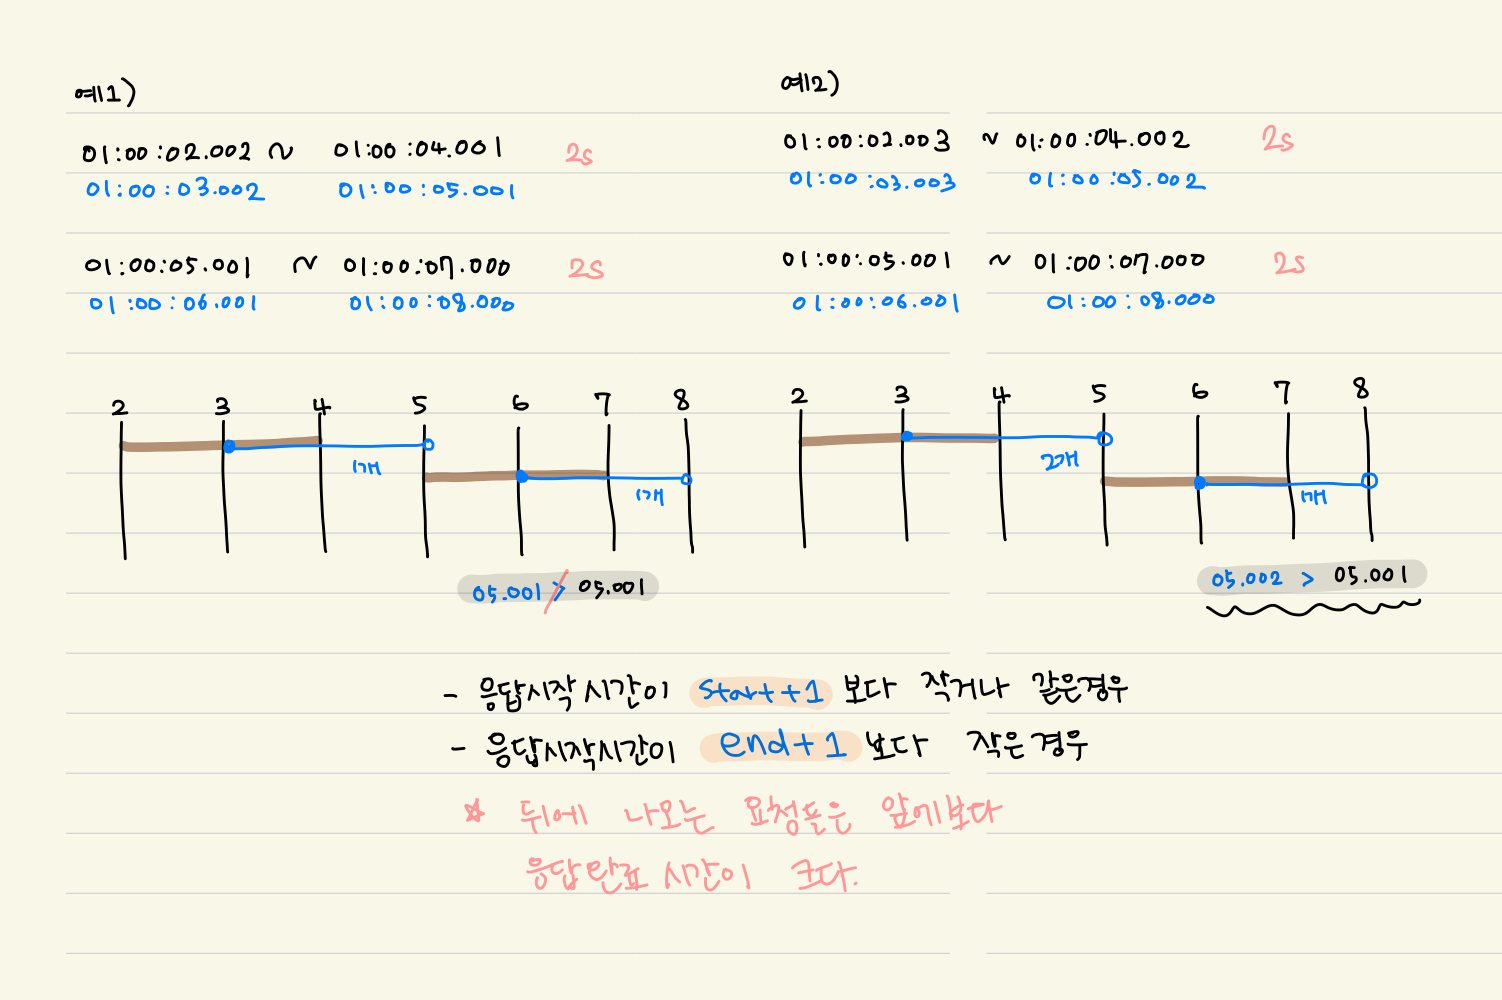 예1)
01:00:02.002 ~ 01:00:04.001 2s
01:00:03.002 01:00:05.001
01:00:05.001 ~ 01:00:07.000 2s
01:00:06.001 01:00:08.000
2 3 4 5 6 7 8
1개
1개
05.001 > 05.001
예2)
01:00:02.003 ~ 01:00:04.002 2s
01:00:03.003 01:00:05.002
01:00:05.001 ~ 01:00:07.000 2s
01:00:06.001 01:00:08.000
2 3 4 5 6 7 8
2개
1개
05.002 > 05.001
- 응답시작시간이 start+1 보다 작거나 같은경우
- 응답시작시간이 end+1 보다 작은경우
☆ 뒤에 나오는 요청들은 앞에보다
응답완료시간이 크다.